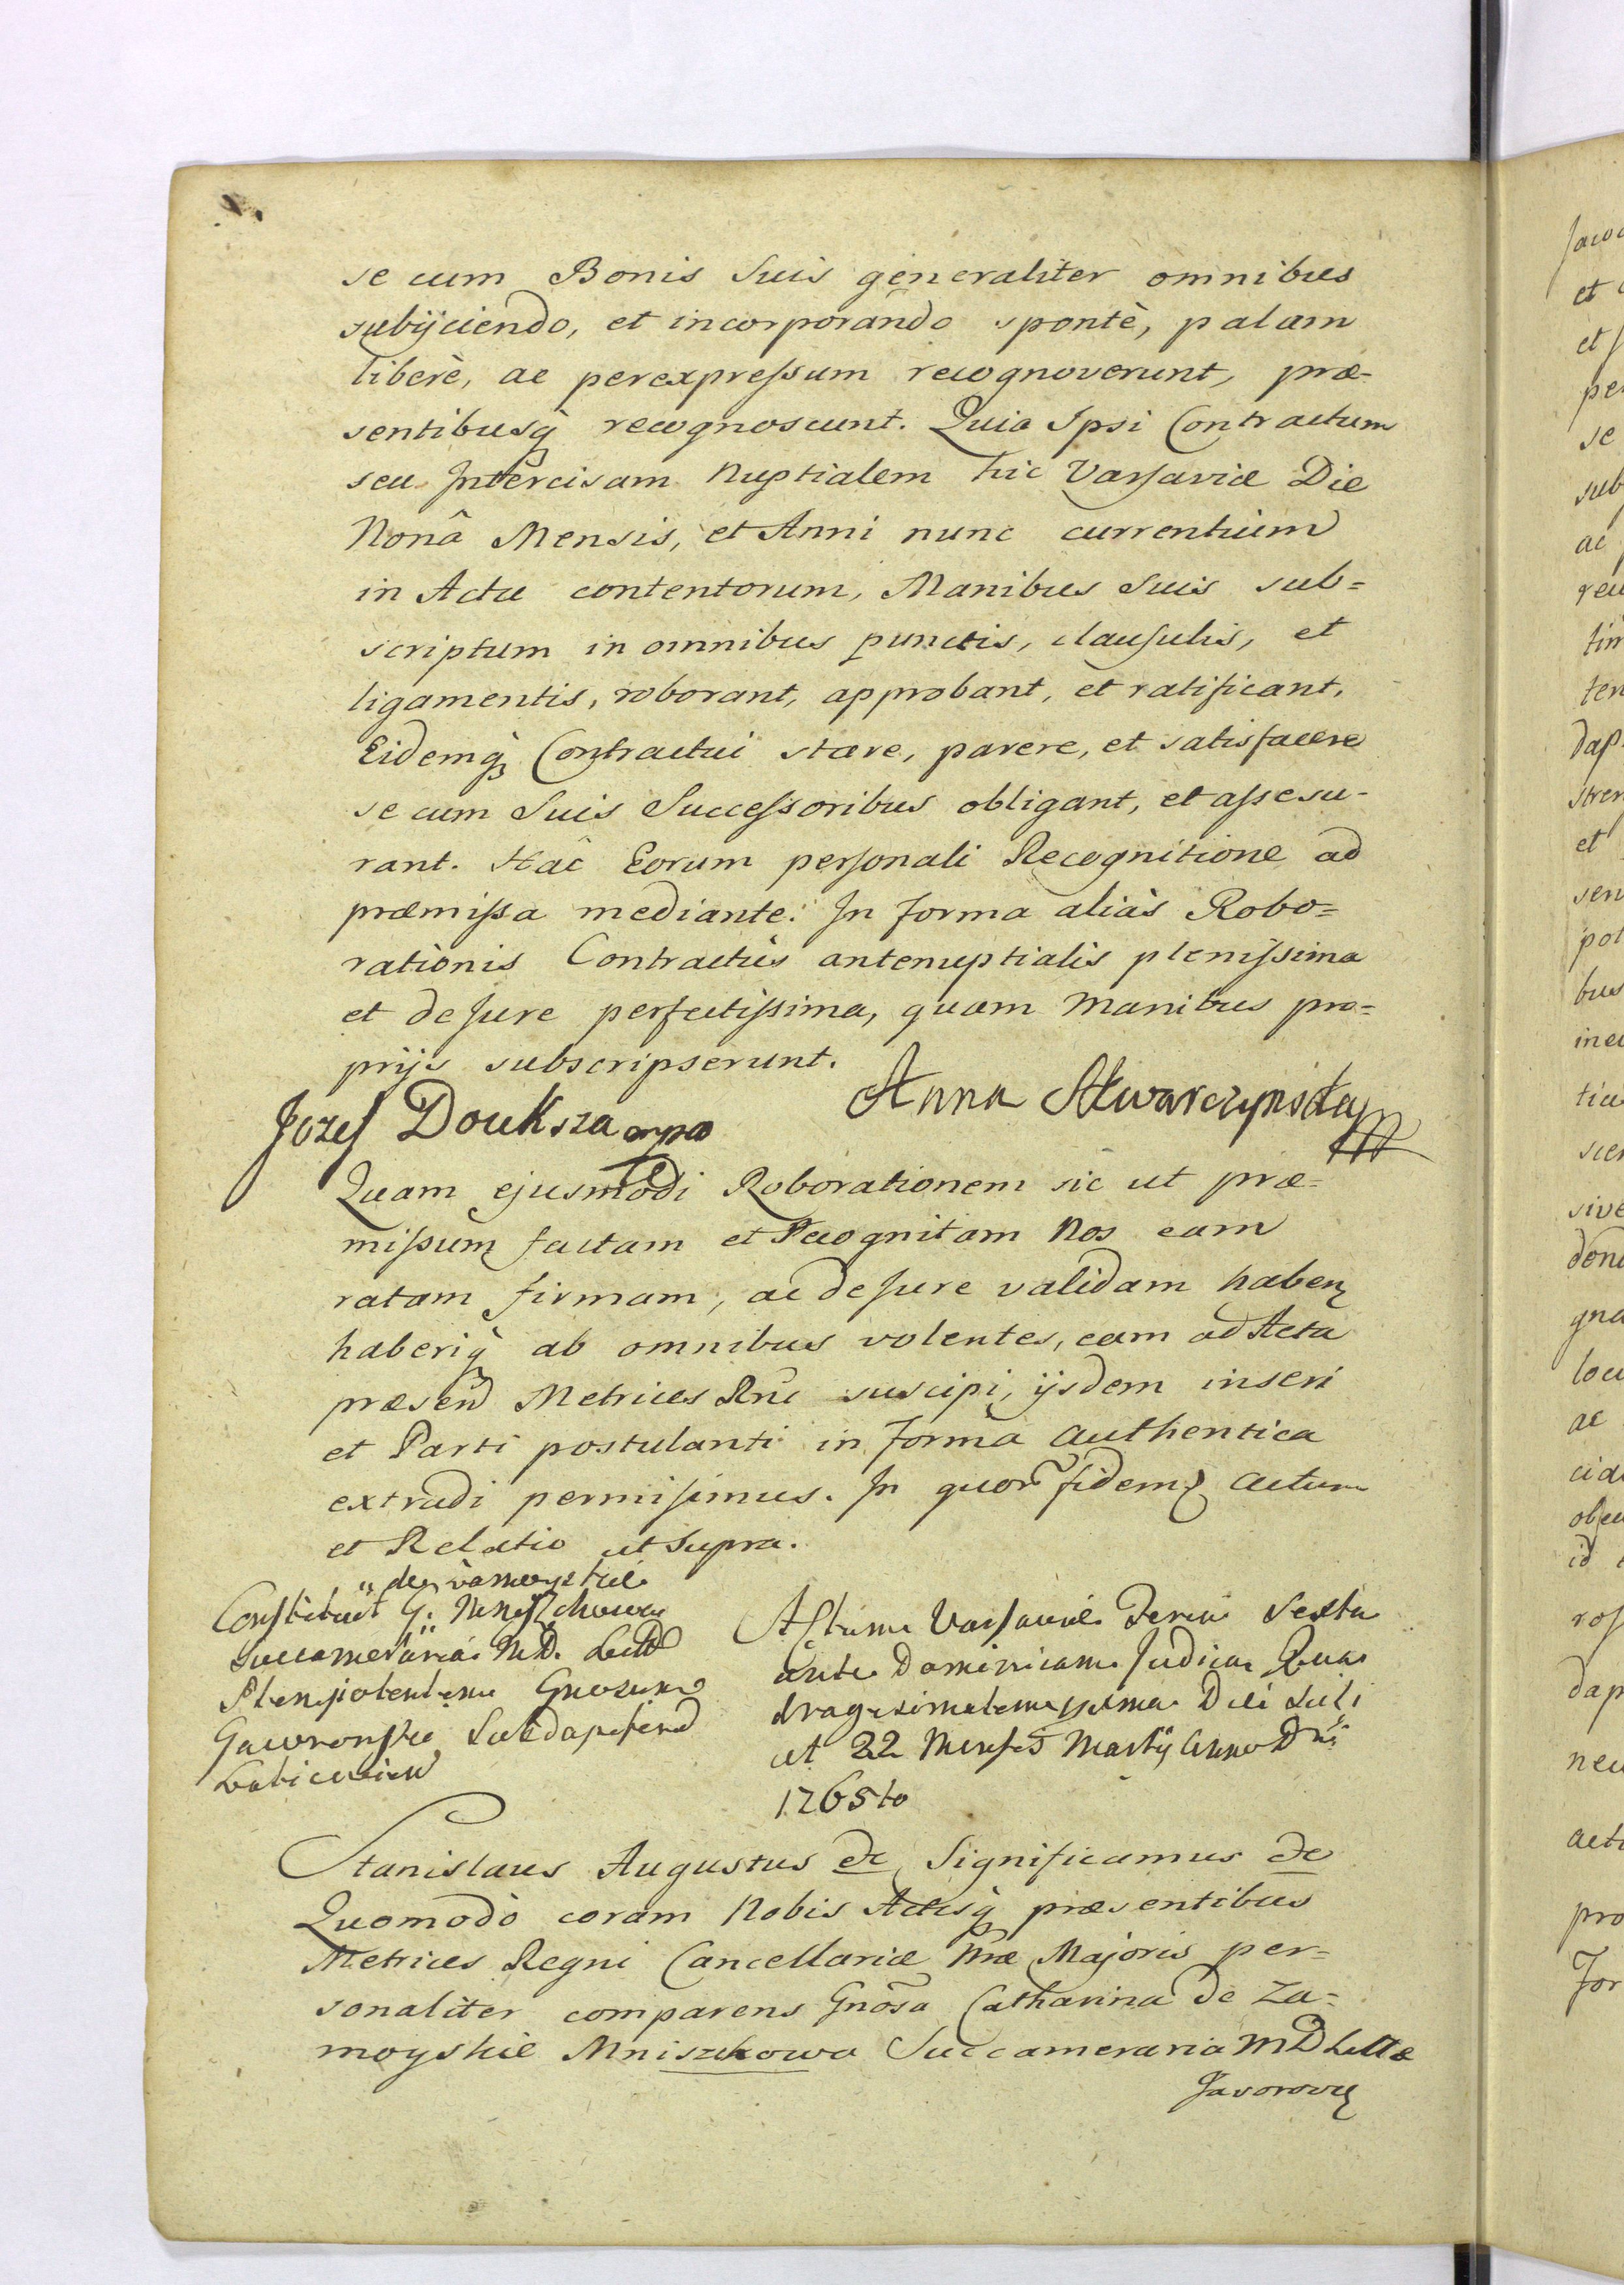 se cum Bonis Suis generaliter omnibus
subijciendo, et incorporando spontè, palam
liberè, ac perexpressum recognoverunt, præ-
sentibusq̀ recognoscunt. Quia Ipsi Contractum
seu Intercisam Nuptialem hic Varsaviæ Die
Nonâ Mensis, et Anni nunc currentium
in Actu contentorum, Manibus Suis sub=
scriptum in omnibus punctis, clausulis, et
ligamentis, roborant, approbant, et ratificant.
Eidemq̀ Contractui stare, parere, et satisfacere
se cum Suis Successoribus obligant, et assecu-
rant. Hâc Eorum personali Recognitione ad
præmissa mediante. In forma aliàs Robo=
rationis Contractûs antenuptialis plenissima
et de Jure perfectissima, quam Manibus pro=
prijs subscripserunt.
Jozef Douksza mpo
Anna Skwarczynska
Quam ejusmodi Roborationem sic ut præ=
missum factam et Recognitam Nos eam
ratam firmam, ac de Jure validam haben
haberiq̀ ab omnibus volentes, eam ad Acta
præsen Metrices Rni suscipi, ijsdem inseri
et Parti postulanti in forma authentica
extradi permisimus. In quor fidem Actum
et Relatio ut Supra.
de Zamoyskie
Constituit G. Mniszchowa
Succameraria M. D. Litt
Plenipotentem Gnosum
Gawronski Subdapiferid
Actum Varsaviæ Feria Sexta
ante Dominicam Judica Qua
dragesimalem proxima Die scili
et 22 Mensis Martij Anno Dni
1765to
Stanislaus Augustus &c Significamus &c
Quomodò coram Nobis Actisq̀ præsentibus
Metrices Regni Cancellariæ Mæ Majoris per=
sonaliter comparens Gnosa Catharina de Za=
moyskie Mniszkowa Succameraria M D Littæ